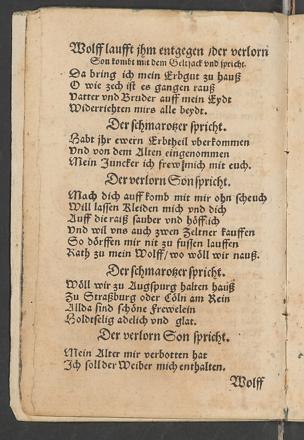 Wolff laufft jhm entgegen /der verlorn
Son kombt mit dem Geltzack vnd spricht.
Da bring ich mein Erbgut zu hauß
O wie zech ist es gangen rauß
Vatter vnd Bruder auff mein Eydt
Widerriehten mirs alle beydt.
Der schmarotzer spricht.
Habt jhr ewern Erbtheil vberkommen
Vnd von dem Alten eingenommen
Mein Juncker ich frew mich mit euch.
Der verlorn Son spricht.
Mach dich auff komb mit mir ohn scheuch
Will lassen Kleiden mich vnd dich
Auff die raiß sauber vnd höfflich
Vnd wil vns auch zwen Zeltner kauffen
So dörffen mir nit zu fussen lauffen
Rath zu mein Wolff/ wo wöll wir nauß.
Der schmarotzer spricht.
Wöll wir zu Augspurg halten hauß
Zu Straßburg oder Cöln am Rein
Allda sind schöne Frewelein
Holdtselig adelich vnd glat.
Der verlorn Son spricht.
Mein Alter mir verbotten hat
Ich soll der Weiber mich enthalten.
Wolff